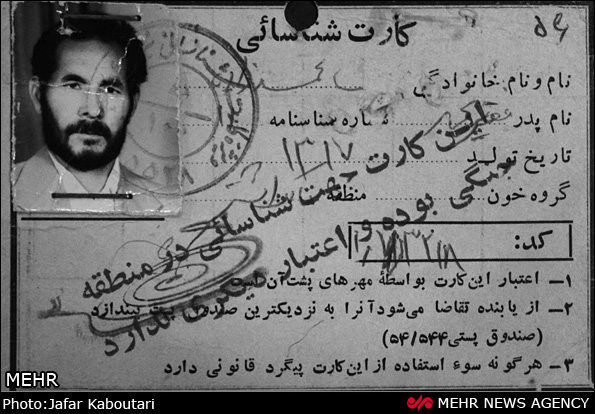 کارت شناسائی
۵۶
نام و نام خانوادگی
نام پدر شماره شناسنامه
تاریخ تولید ۱۳۱۷
گروه خون منطقه
کد:
این کارت جهت شناسائی در منطقه
جنگی بوده و اعتبار دیگری ندارد
۱ــ اعتبار این‌کارت بواسطهٔ مهرهای پشت‌آن است
۲ــ از یابنده تقاضا می‌شود آنرا به نزدیکترین صندوق پست بیندازد
(صندوق پستی ۵۴/۵۴۴)
۳ــ هرگونه سوء استفاده از این‌کارت پیگرد قانونی دارد
MEHR
Photo:Jafar Kaboutari
MEHR NEWS AGENCY